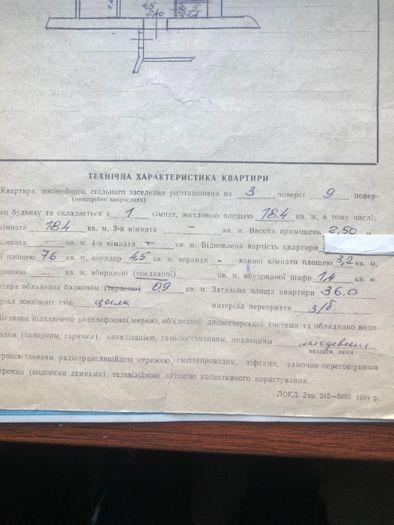 4,5
ТЕХНІЧНА ХАРАКТЕРИСТИКА КВАРТИРИ
Квартира посімейного, спільного заселення розташована на 3 поверсі 9 повер-
(непотрібне викреслити)
го будинку та складається з 1 кімнат, житловою площею 18.4 кв. м, в тому числі:
кімната 18.4 кв. м, 3-я кімната — кв. м. Висота приміщень 2,50 м
кімната кв. м, 4-а кімната — кв. м. Відновлена вартість квартири
площею 7.6 кв. м, коридор 4,5 кв. м, веранди - ванної кімнати площею 3,2 кв. м,
кв. м, вбиральні (поєднаної) кв. м, вбудованої шафи 1,4 кв. м.
обладнана балконом (терасою) 0,9 кв. м. Загальна площа квартири 36.0
зовнішніх стін цегла матеріал перекриття з/б.
Будинок підключено до телефонної мережі, об'єднаної диспетчерської системи та обладнано водо-
(холодним, гарячим), каналізацією, газопостачанням, опаленням місцевим
вказати, яким
радіотрансляційною мережею, сміттєпроводом, ліфтами, замочно-переговорними
(кодовими замками), телевізійною антеною колективного користування.
ЛОКД. Зам. 245—5000. 1994 р.